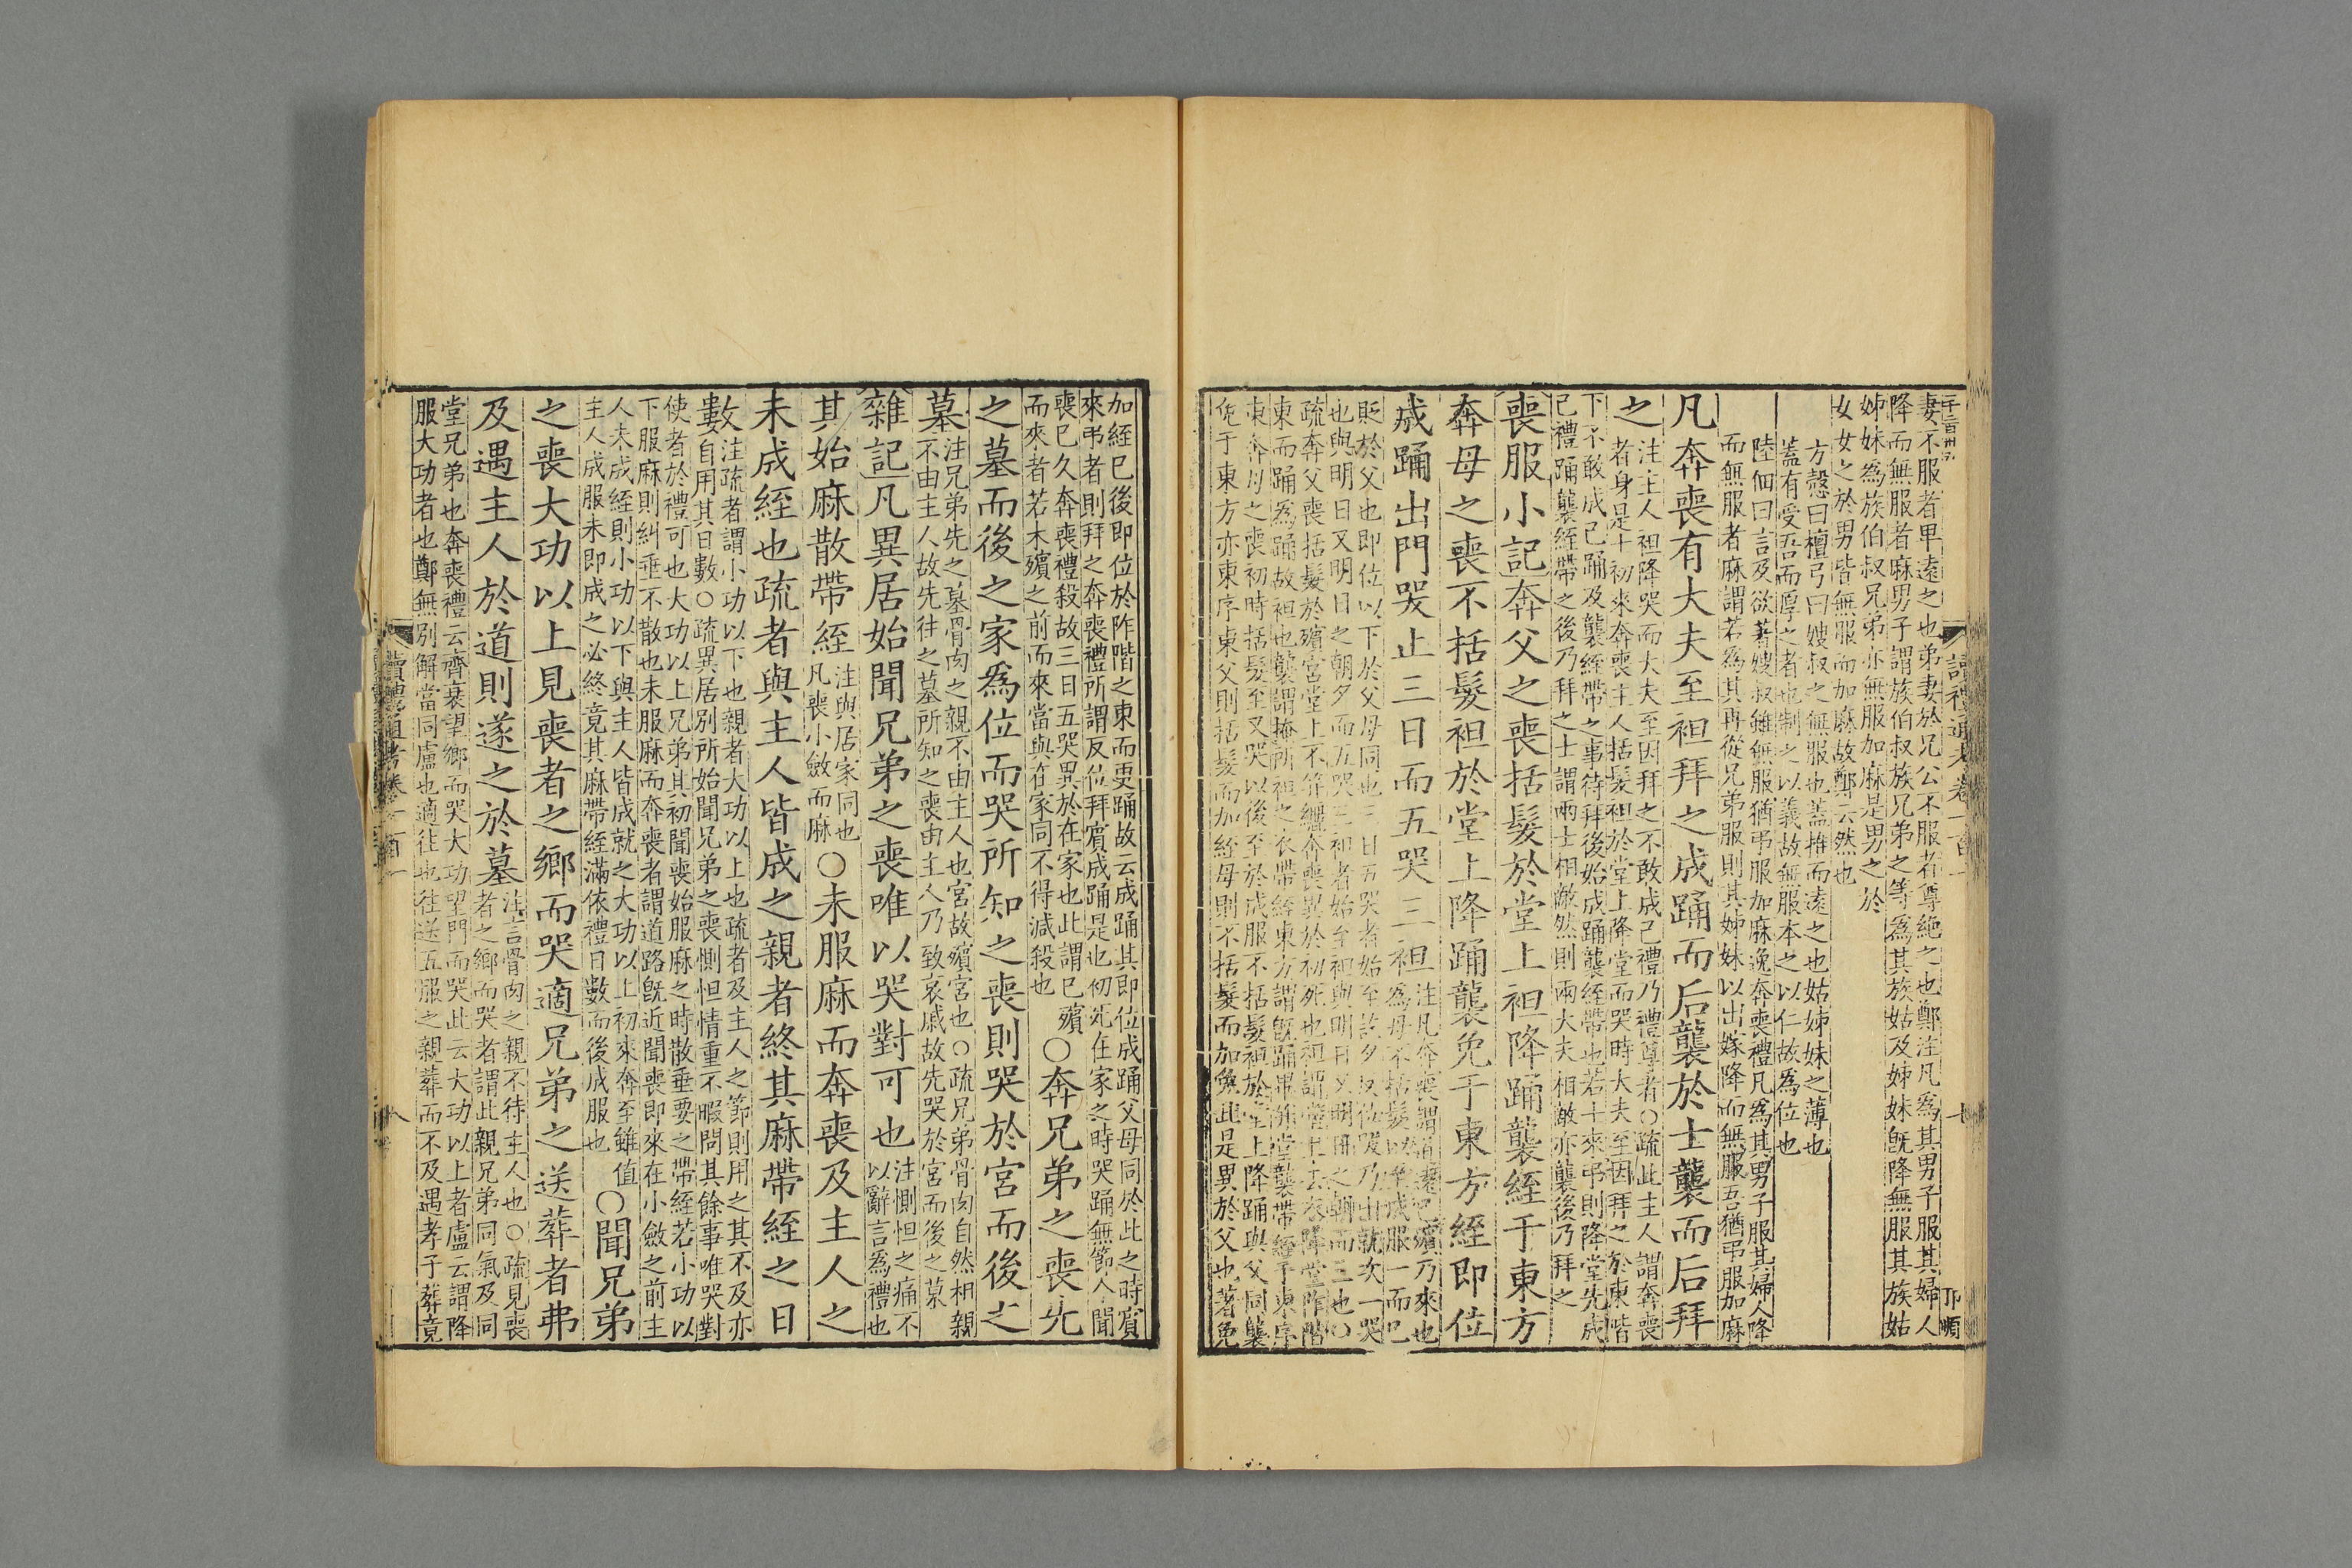 讀禮通考卷一百一
妻不服者卑遠之也弟妻於兄公不服者尊絶之也鄭注凡爲其男子服其婦人
降而無服者麻男子謂族伯叔族兄弟之等爲其族姑及姊妹旣降無服其族姑
姊妹爲族伯叔兄弟亦無服加麻是男之於
女女之於男皆無服而加麻故鄭云然也
方慤曰檀弓曰嫂叔之無服也蓋推而遠之也姑姊妹之薄也
蓋有受吾而厚之者也制之以義故無服本之以仁故爲位也
陸佃曰言及欲著嫂叔雖無服猶弔服加麻逸奔喪禮凡爲其男子服其婦人降
而無服者麻謂若爲其再從兄弟服則其姊妹以出嫁降而無服吾猶弔服加麻
凡奔喪有大夫至袒拜之成踊而后襲於士襲而后拜
之
注主人袒降哭而大夫至因拜之不敢成己禮乃禮尊者○疏此主人謂奔喪
者身是士初來奔喪主人括髮袒於堂上降堂而哭時大夫至因拜之於東階
下不敢成己踊及襲絰帶之事待拜後始成踊襲絰帶也若士來弔則降堂先成
己禮踊襲絰帶之後乃拜之士謂兩士相敵然則兩大夫相敵亦襲後乃拜之
喪服小記奔父之喪括髮於堂上袒降踊襲絰于東方
奔母之喪不括髮袒於堂上降踊襲免于東方絰即位
成踊出門哭止三日而五哭三袒
注凡奔喪謂道遠已殯乃來也
爲母不括髮以至成服一而已
貶於父也即位以下於父母同也三日五哭者始至訖夕反位哭乃出就次一哭
也與明日又明日之朝夕而五哭三袒者始至袒與明日又明日之朝而三也○
疏奔父喪括髮於殯宮堂上不笄纚奔喪異於初死也袒謂堂上去衣降堂阼階
東而踊爲踊故袒也襲謂掩所袒之衣帶絰東方謂旣踊畢升堂襲帶絰于東序
東奔母之喪初時括髮至又哭以後至於成服不括髮袒於堂上降踊與父同襲
免于東方亦東序東父則括髮而加絰母則不括髮而加免此是異於父也著免
加絰已後即位於阼階之東而更踊故云成踊其即位成踊父母同於此之時賓
來弔者則拜之奔喪禮所謂反位拜賓成踊是也初死在家之時哭踊無節今聞
喪已久奔喪禮殺故三日五哭異於在家也此謂已殯
而來者若未殯之前而來當與在家同不得減殺也
○奔兄弟之喪先
之墓而後之家爲位而哭所知之喪則哭於宮而後之
墓
注兄弟先之墓骨肉之親不由主人也宮故殯宮也○疏兄弟骨肉自然相親
不由主人故先往之墓所知之喪由主人乃致哀戚故先哭於宮而後之墓
雜記凡異居始聞兄弟之喪唯以哭對可也
注惻怛之痛不
以辭言爲禮也
其始麻散帶絰
注與居家同也
凡喪小斂而麻
○未服麻而奔喪及主人之
未成絰也疏者與主人皆成之親者終其麻帶絰之日
數
注疏者謂小功以下也親者大功以上也疏者及主人之節則用之其不及亦
自用其日數○疏異居別所始聞兄弟之喪惻怛情重不暇問其餘事唯哭對
使者於禮可也大功以上兄弟其初聞喪始服麻之時散垂要之帶絰若小功以
下服麻則糾垂不散也未服麻而奔喪者謂道路旣近聞喪即來在小斂之前主
人未成絰則小功以下與主人皆成就之大功以上初來奔至雖值
主人成服未即成之必終竟其麻帶絰滿依禮日數而後成服也
○聞兄弟
之喪大功以上見喪者之鄉而哭適兄弟之送葬者弗
及遇主人於道則遂之於墓
注言骨肉之親不待主人也○疏見喪
者之鄉而哭者謂此親兄弟同氣及同
堂兄弟也奔喪禮云齊衰望鄉而哭大功望門而哭此云大功以上者盧云謂降
服大功者也鄭無別解當同盧也適往也往送五服之親葬而不及遇孝子葬竟
讀禮通考卷一百一
八